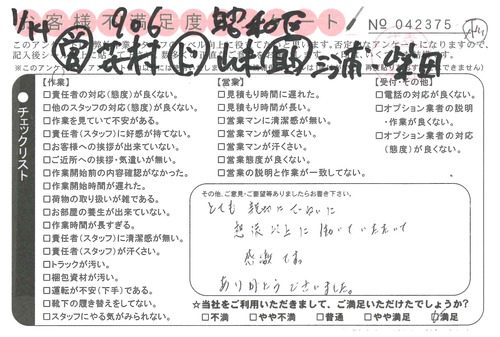 お客様不満足度アンケート
№ 042375
1/14 906 昭和区
チェックリスト
【作業】
□責任者の対応(態度)が良くない。
□他のスタッフの対応(態度)が良くない。
□作業を見ていて不安がある。
□責任者(スタッフ)に好感が持てない。
□お客様への挨拶が出来ていない。
□ご近所への挨拶・気遣いが無い。
□作業開始前の内容確認がなかった。
□作業開始時間が遅れた。
□荷物の取り扱いが雑である。
□お部屋の養生が出来ていない。
□作業時間が長すぎる。
□責任者(スタッフ)に清潔感が無い。
□責任者(スタッフ)が汗くさい。
□トラックが汚い。
□梱包資材が汚い。
□運転が不安(下手)である。
□靴下の履き替えをしてない。
□スタッフにやる気がみられない。
【営業】
□見積もり時間に遅れた。
□見積もり時間が長い。
□営業マンに清潔感が無い。
□営業マンが煙草くさい。
□営業マンが汗くさい。
□営業態度が良くない。
□営業の説明と作業が一致してない。
【受付・その他】
□電話の対応が良くない。
□オプション業者の説明
・作業が良くない。
□オプション業者の対応
(態度)が良くない。
その他、ご意見・ご要望等ありましたらお書き下さい。
とても親切にていねいに
想像以上に働いていただいて
感謝です。
ありがとうございました。
☆当社をご利用いただきまして、ご満足いただけたでしょうか?
□不満 □やや不満 □普通 □やや満足 ☑満足